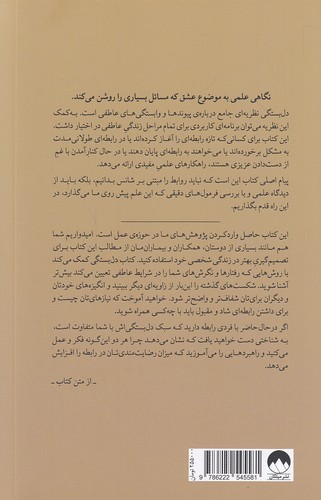 نگاهی علمی به موضوع عشق که مسائل بسیاری را روشن می‌کند.
دل‌بستگی نظریه‌ای جامع درباره‌ی پیوندها و وابستگی‌های عاطفی است. به‌کمک
این نظریه می‌توان برنامه‌ای کاربردی برای تمام مراحل زندگی عاطفی در اختیار داشت.
این کتاب برای کسانی‌که تازه رابطه‌ای را آغاز کرده‌اند یا در رابطه‌ای طولانی‌مدت
به مشکل برخورده‌اند یا می‌خواهند به رابطه‌ای پایان دهند یا در حال کنارآمدن با غمِ
از دست‌دادن عزیزی هستند، راهکارهای علمی مفیدی ارائه می‌دهد.
پیام اصلی کتاب این است که نباید روابط را مبتنی بر شانس بدانیم، بلکه باید از
دیدگاه علمی و با بررسی فرمول‌های دقیقی که این علم پیش روی ما می‌گذارد، در
این راه قدم بگذاریم.
این کتاب حاصل واردکردن پژوهش‌های ما در حوزه‌ی عمل است. امیدواریم شما
هم مانند بسیاری از دوستان، همکاران و بیماران‌مان از مطالب این کتاب برای
تصمیم‌گیری بهتر در زندگی شخصی خود استفاده کنید. کتاب دل‌بستگی کمک می‌کند
با روش‌هایی که رفتارها و نگرش‌های شما را در شرایط عاطفی تعیین می‌کند بیش‌تر
آشنا شوید. شکست‌های گذشته را این‌بار از زاویه‌ای دیگر ببینید و انگیزه‌های خودتان
و دیگران برای‌تان شفاف‌تر و واضح‌تر شود. خواهید آموخت که نیازهای‌تان چیست و
برای داشتن رابطه‌ای شاد و مقبول باید با چه‌کسی همراه شوید.
اگر درحال‌حاضر با فردی رابطه دارید که سبک دل‌بستگی‌اش با شما متفاوت است،
به شناختی دست خواهید یافت که نشان می‌دهد چرا هر دو این‌گونه فکر و عمل
می‌کنید و راهبردهایی را می‌آموزید که میزان رضایت‌مندی‌تان در رابطه را افزایش
می‌دهد.
ـ از متن کتاب ـ
نشر میلکان
9 786222 545581
تومان